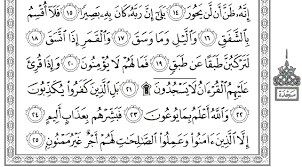 إِنَّهُۥ ظَنَّ أَن لَّن يَحُورَ ١٤ بَلَىٰٓ إِنَّ رَبَّهُۥ كَانَ بِهِۦ بَصِيرًا ١٥ فَلَآ أُقْسِمُ
بِٱلشَّفَقِ ١٦ وَٱلَّيْلِ وَمَا وَسَقَ ١٧ وَٱلْقَمَرِ إِذَا ٱتَّسَقَ ١٨
لَتَرْكَبُنَّ طَبَقًا عَن طَبَقٍ ١٩ فَمَا لَهُمْ لَا يُؤْمِنُونَ ٢٠ وَإِذَا قُرِئَ
عَلَيْهِمُ ٱلْقُرْءَانُ لَا يَسْجُدُونَ ۩ ٢١ بَلِ ٱلَّذِينَ كَفَرُوا۟ يُكَذِّبُونَ
٢٢ وَٱللَّهُ أَعْلَمُ بِمَا يُوعُونَ ٢٣ فَبَشِّرْهُم بِعَذَابٍ أَلِيمٍ ٢٤
إِلَّا ٱلَّذِينَ ءَامَنُوا۟ وَعَمِلُوا۟ ٱلصَّٰلِحَٰتِ لَهُمْ أَجْرٌ غَيْرُ مَمْنُونٍۭ ٢٥